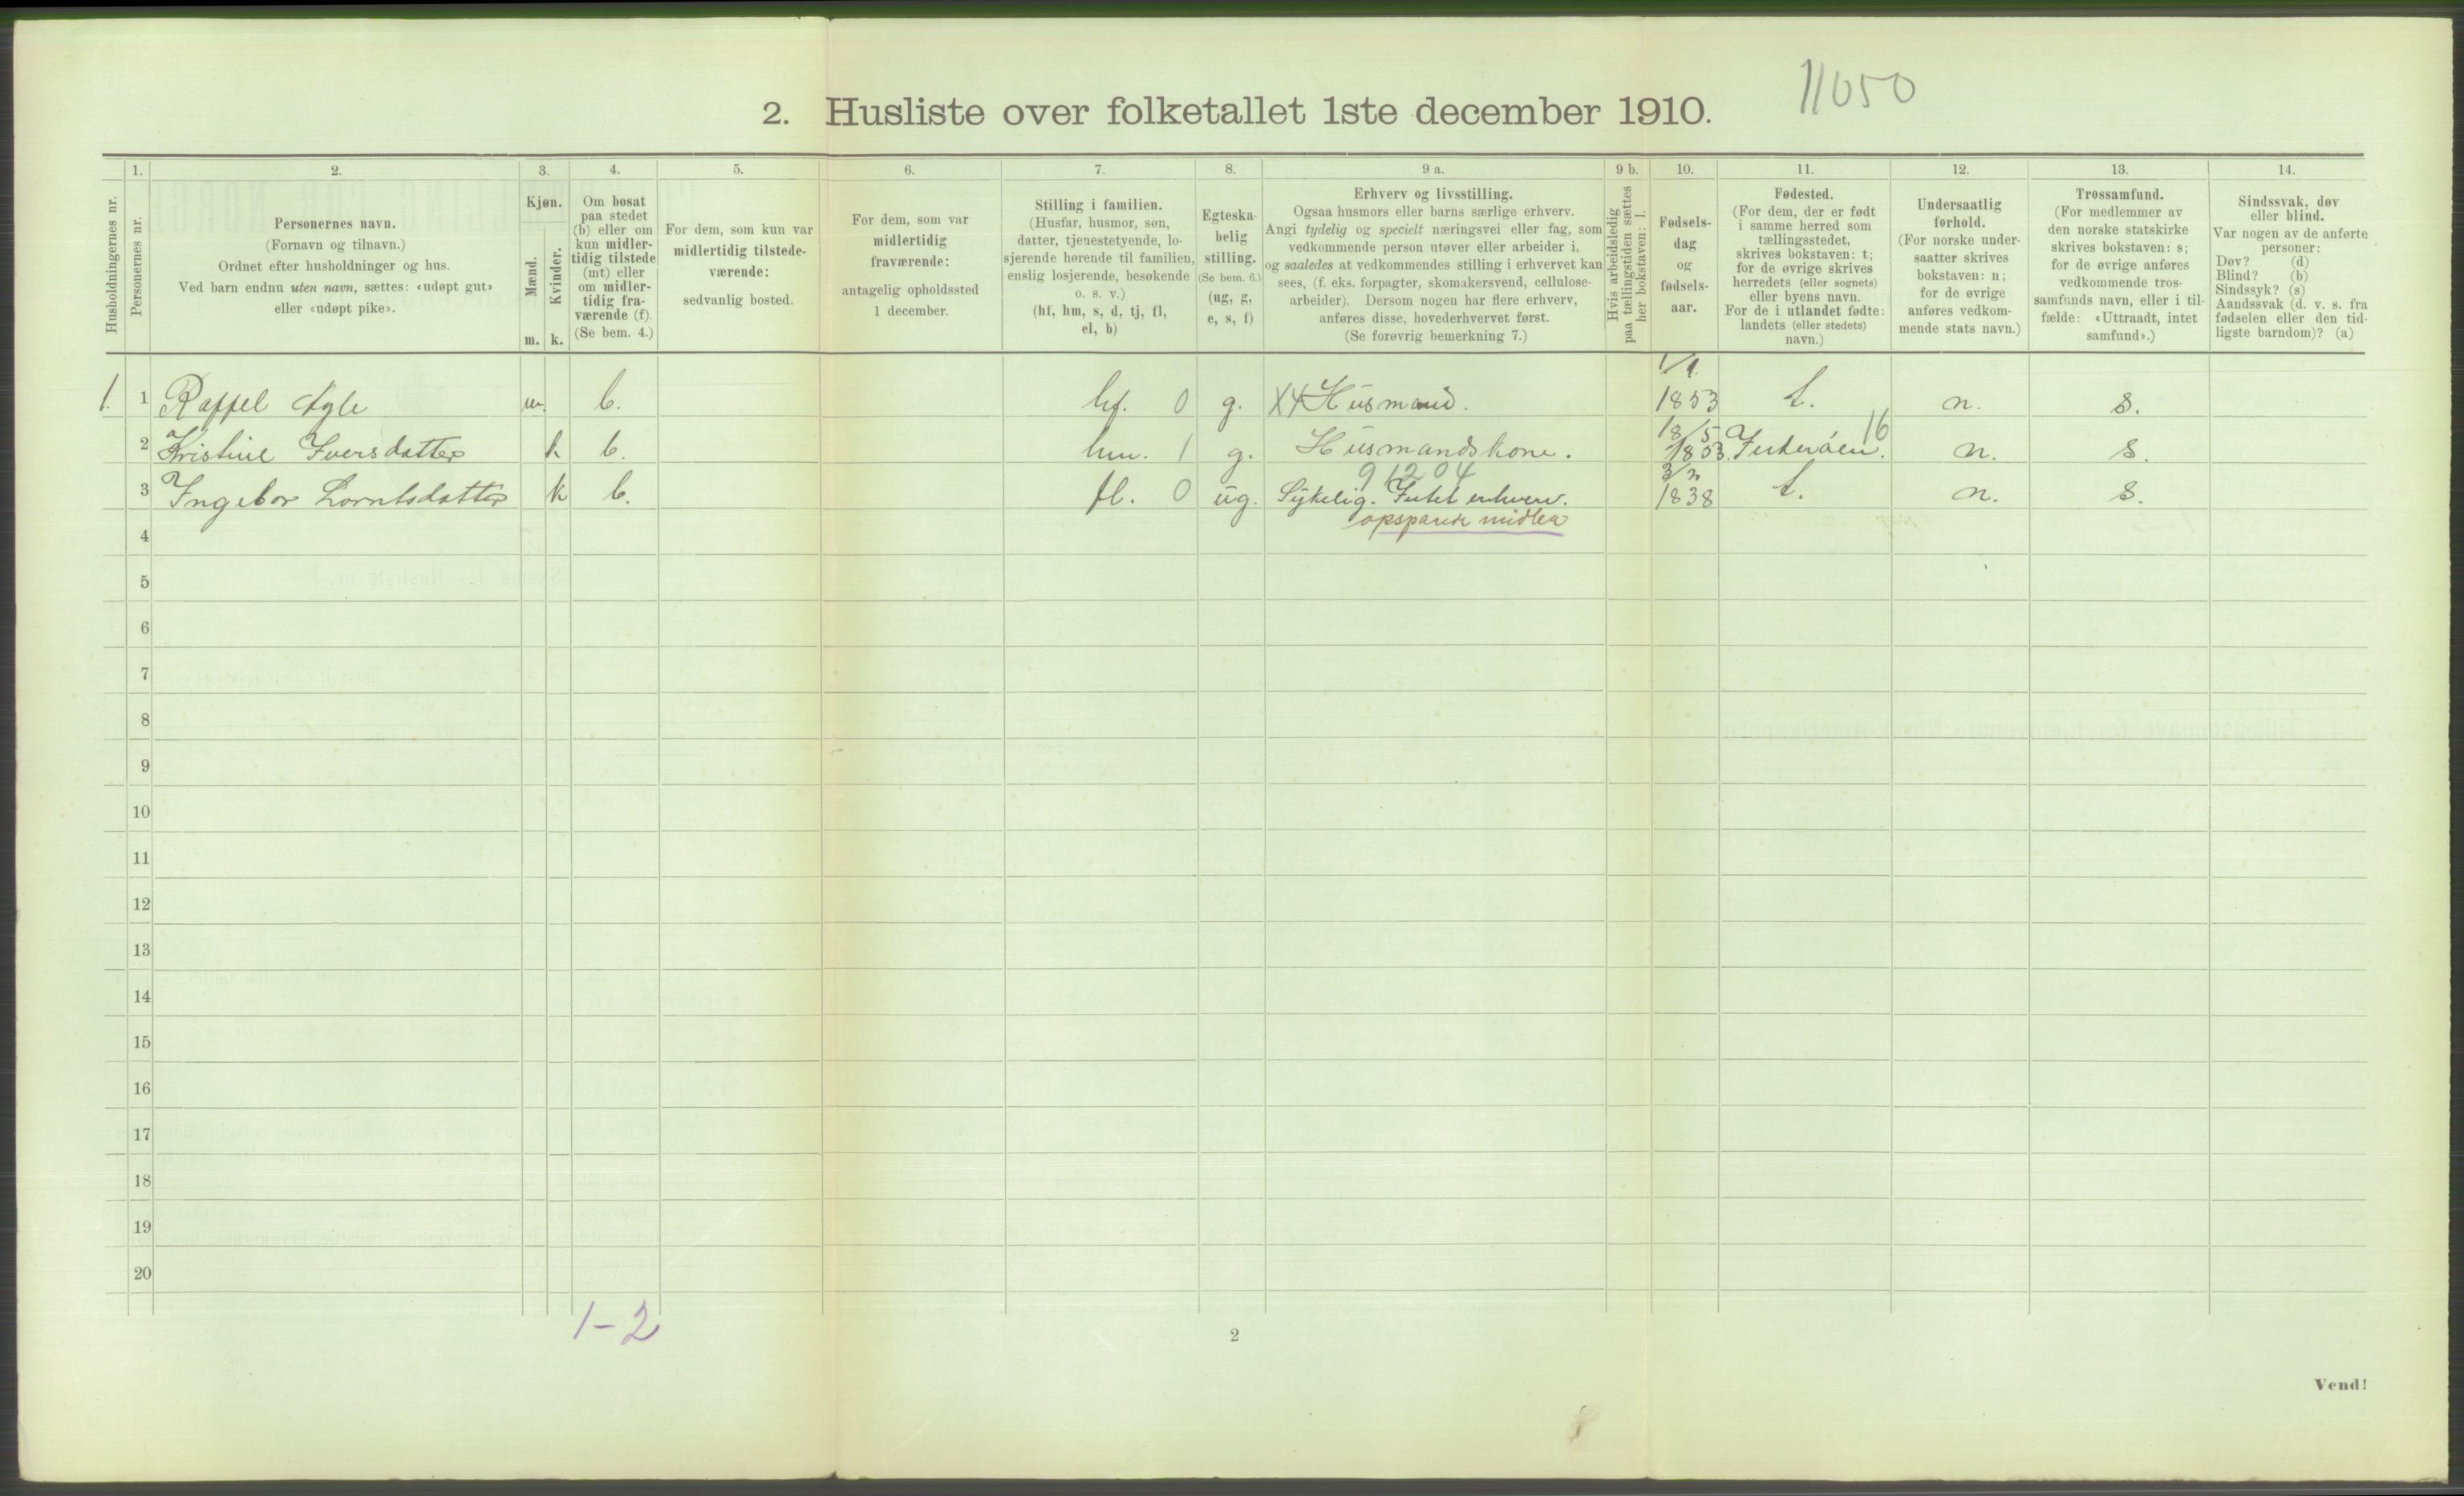 11050
2. Husliste over folketallet 1ste december 1910.
Husholdningernes nr.
1.
Personernes nr.
2.
Personernes navn.
(Fornavn og tilnavn.)
Ordnet efter husholdninger og hus.
Ved barn endnu uten navn, sættes: «udøpt gut»
eller «udøpt pike».
3.
Kjøn.
Mænd.
Kvinder.
m. k.
4.
Om bosat
paa stedet
(b) eller om
kun midler-
tidig tilstede
(mt) eller
om midler-
tidig fra-
værende (f).
(Se bem. 4.)
5.
For dem, som kun var
midlertidig tilstede-
værende:
sedvanlig bosted.
6.
For dem, som var
midlertidig
fraværende:
antagelig opholdssted
1 december.
7.
Stilling i familien.
(Husfar, husmor, søn,
datter, tjenestetyende, lo-
sjerende hørende til familien,
enslig losjerende, besøkende
o. s. v.)
(hf, hm, s, d, tj, fl,
el, b)
8.
Egteska-
belig
stilling.
(Se bem. 6.)
(ug, g,
e, s, f)
9 a.
Erhverv og livsstilling.
Ogsaa husmors eller barns særlige erhverv.
Angi tydelig og specielt næringsvei eller fag, som
vedkommende person utøver eller arbeider i,
og saaledes at vedkommendes stilling i erhvervet kan
sees, (f. eks. forpagter, skomakersvend, cellulose-
arbeider). Dersom nogen har flere erhverv,
anføres disse, hovederhvervet først.
(Se forøvrig bemerkning 7.)
9 b.
Hvis arbeidsledig
paa tællingstiden sættes
her bokstaven: l.
10.
Fødsels-
dag
og
fødsels-
aar.
11.
Fødested.
(For dem, der er født
i samme herred som
tællingsstedet,
skrives bokstaven: t;
for de øvrige skrives
herredets (eller sognets)
eller byens navn.
For de i utlandet fødte:
landets (eller stedets)
navn.)
12.
Undersaatlig
forhold.
(For norske under-
saatter skrives
bokstaven: n;
for de øvrige
anføres vedkom-
mende stats navn.)
13.
Trossamfund.
(For medlemmer av
den norske statskirke
skrives bokstaven: s;
for de øvrige anføres
vedkommende tros-
samfunds navn, eller i til-
fælde: «Uttraadt, intet
samfund».)
14.
Sindssvak, døv
eller blind.
Var nogen av de anførte
personer:
Døv? (d)
Blind? (b)
Sindssyk? (s)
Aandssvak (d. v. s. fra
fødselen eller den tid-
ligste barndom)? (a)
1. 1 m. b. hf. 0 g. X4 Husmand. 1/9 1853 t. n. s.
2 Kristine Iversdatter k b. hm. 1 g. Husmandskone. 18/5 1853. Inderøen. 16 n. s.
91204
3 Ingebor Lorntsdatter k b. fl. 0 ug. Sykelig. Intet erhverv. 1838 t. n. s.
opsparte midler
4
5
6
7
8
9
10
11
12
13
14
15
16
17
18
19
20
1-2
2
Vend!